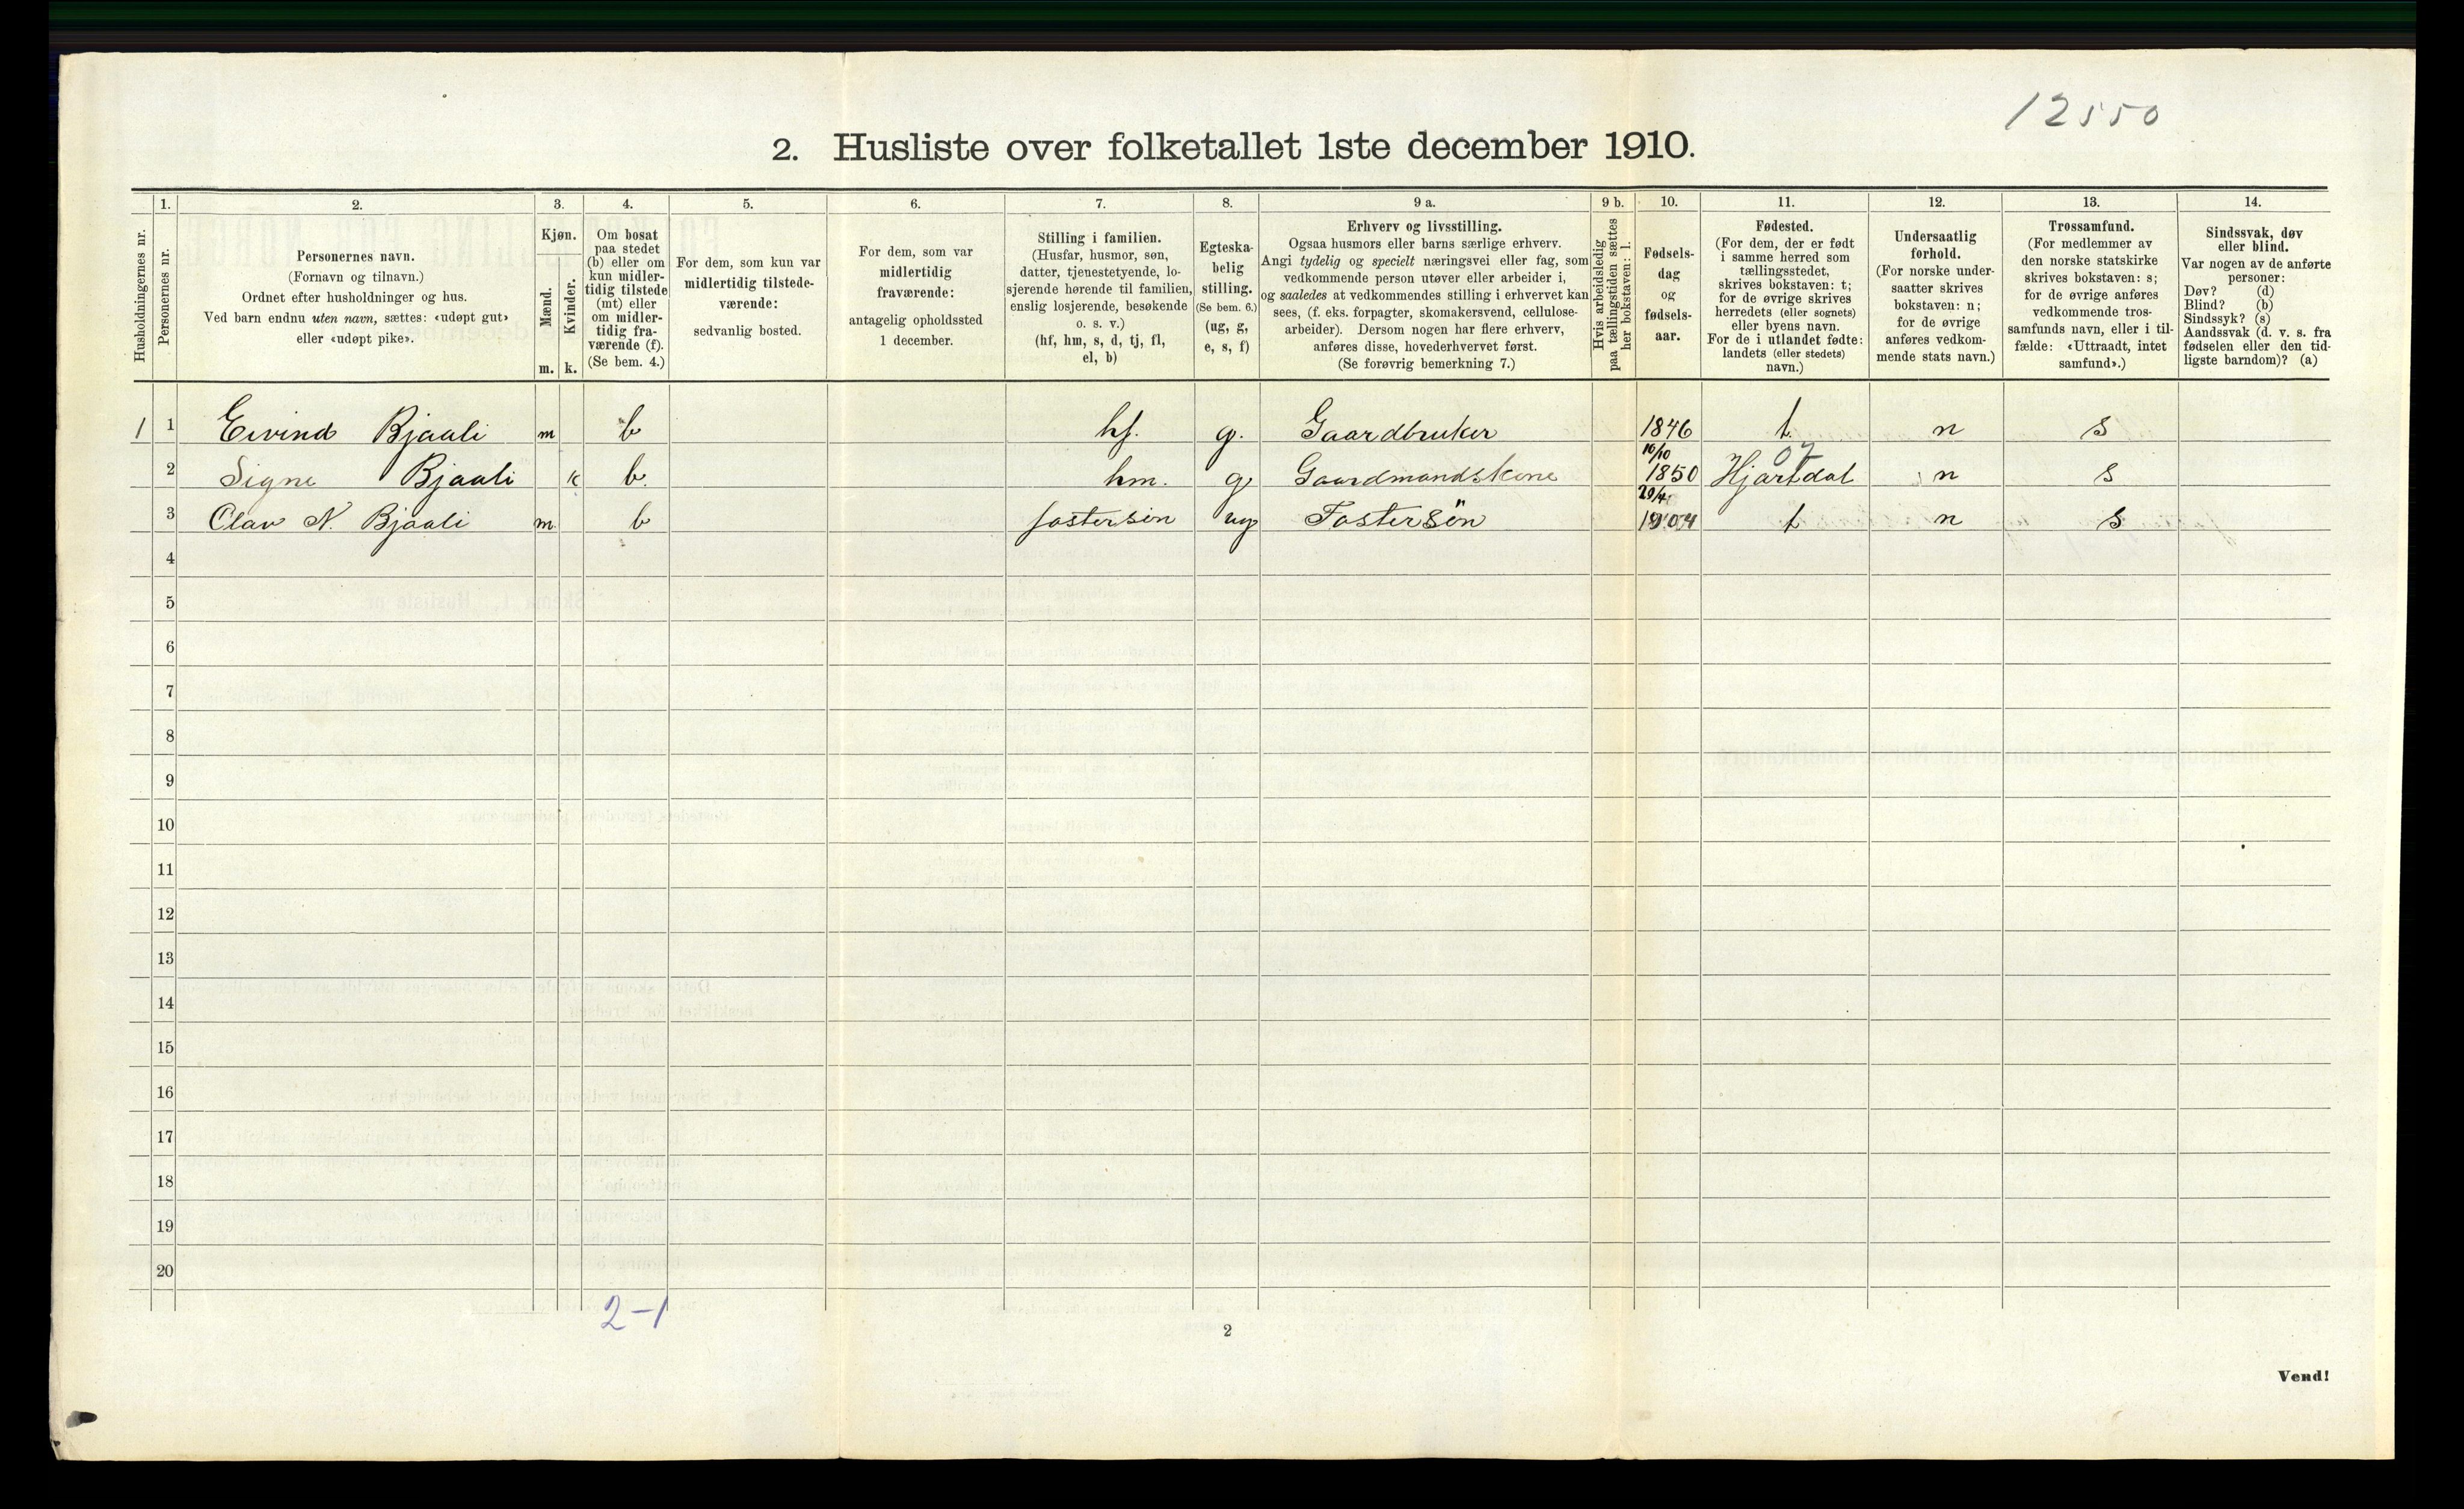 12550
2. Husliste over folketallet 1ste december 1910.
Husholdningernes nr.
1.
Personernes nr.
2.
Personernes navn.
(Fornavn og tilnavn.)
Ordnet efter husholdninger og hus.
Ved barn endnu uten navn, sættes: «udøpt gut»
eller «udøpt pike».
3.
Kjøn.
Mænd.
Kvinder.
m. k.
4.
Om bosat
paa stedet
(b) eller om
kun midler-
tidig tilstede
(mt) eller
om midler-
tidig fra-
værende (f).
(Se bem. 4.)
5.
For dem, som kun var
midlertidig tilstede-
værende:
sedvanlig bosted.
6.
For dem, som var
midlertidig
fraværende:
antagelig opholdssted
1 december.
7.
Stilling i familien.
(Husfar, husmor, søn,
datter, tjenestetyende, lo-
sjerende hørende til familien,
enslig losjerende, besøkende
o. s. v.)
(hf, hm, s, d, tj, fl,
el, b)
8.
Egteska-
belig
stilling.
(Se bem. 6.)
(ug, g,
e, s, f)
9 a.
Erhverv og livsstilling.
Ogsaa husmors eller barns særlige erhverv.
Angi tydelig og specielt næringsvei eller fag, som
vedkommende person utøver eller arbeider i,
og saaledes at vedkommendes stilling i erhvervet kan
sees, (f. eks. forpagter, skomakersvend, cellulose-
arbeider). Dersom nogen har flere erhverv,
anføres disse, hovederhvervet først.
(Se forøvrig bemerkning 7.)
9 b.
Hvis arbeidsledig
paa tællingstiden sættes
her bokstaven: l.
10.
Fødsels-
dag
og
fødsels-
aar.
11.
Fødested.
(For dem, der er født
i samme herred som
tællingsstedet,
skrives bokstaven: t;
for de øvrige skrives
herredets (eller sognets)
eller byens navn.
For de i utlandet fødte:
landets (eller stedets)
navn.)
12.
Undersaatlig
forhold.
(For norske under-
saatter skrives
bokstaven: n;
for de øvrige
anføres vedkom-
mende stats navn.)
13.
Trossamfund.
(For medlemmer av
den norske statskirke
skrives bokstaven: s;
for de øvrige anføres
vedkommende tros-
samfunds navn, eller i til-
fælde: «Uttraadt, intet
samfund».)
14.
Sindssvak, døv
eller blind.
Var nogen av de anførte
personer:
Døv? (d)
Blind? (b)
Sindssyk? (s)
Aandssvak (d. v. s. fra
fødselen eller den tid-
ligste barndom)? (a)
1 1 Eivind Bjaali m b hf. g. Gaardbruker 1846 t. n s
10/10 07
2 Signe Bjaali k b. hm. g Gaardmandskone 1850 Hjartdal n s
29/4
3 Olav N. Bjaali m b fostersön ug Fostersön 1904 t n s
4
5
6
7
8
9
10
11
12
13
14
15
16
17
18
19
20
2-1
2
Vend!